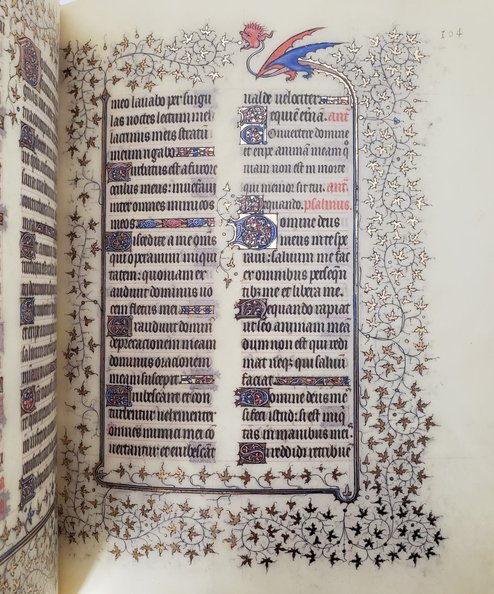 104
meo lauabo per singu
las noctes lectum meū
lacrimis meis stratū
meum rigabo
Turbatus est a furore
oculus meus: inueteraui
inter omnes inimicos
meos.
Discedite a me omnes
qui operamini iniqui
tatem: quoniam ex
audiuit dominus uo
cem fletus mei
Exaudiuit domin̄
deprecacionem meam
dominus orationem
meam suscepit
Erubescant et con
turbentur uehementer
omnes inimici mei cō
uertantur et erubescāt
ualde uelociter
Requiē etn̄ā. ant̄
Conuertere domine
et eripe animā meam qō
niam non est in morte
qui memor sit tui. ant̄
Nequando. psalmus.
Domine deus
meus in te spe
raui: saluum me fac
ex omnibus perseqn̄
tibꝫ me et libera me.
Nequando rapiat
ut leo animam mea
dum non est qui redi
mat neqꝫ qui saluū
faciat
Domine deus me
si feci istud: si est iniq̄
tas in manibus meis
Si reddidi retribuē